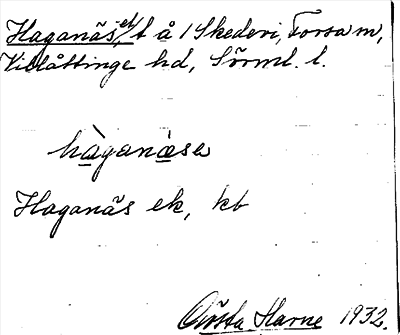 Haganäs, et, t å 1 Skederi, Forsa m,
Villåttinge hd, Sörml. l.
hàganäsə
Haganäs ek, kb
Gösta Harne 1932.